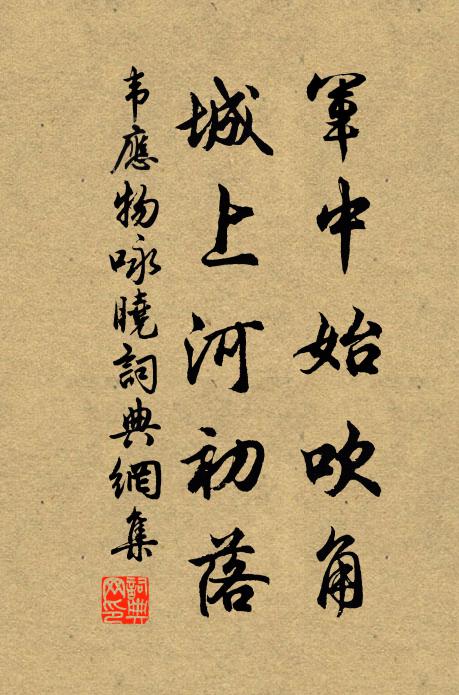 軍中始吹角
城上河初落
韦應物咏曉詞典網集
詞典網印